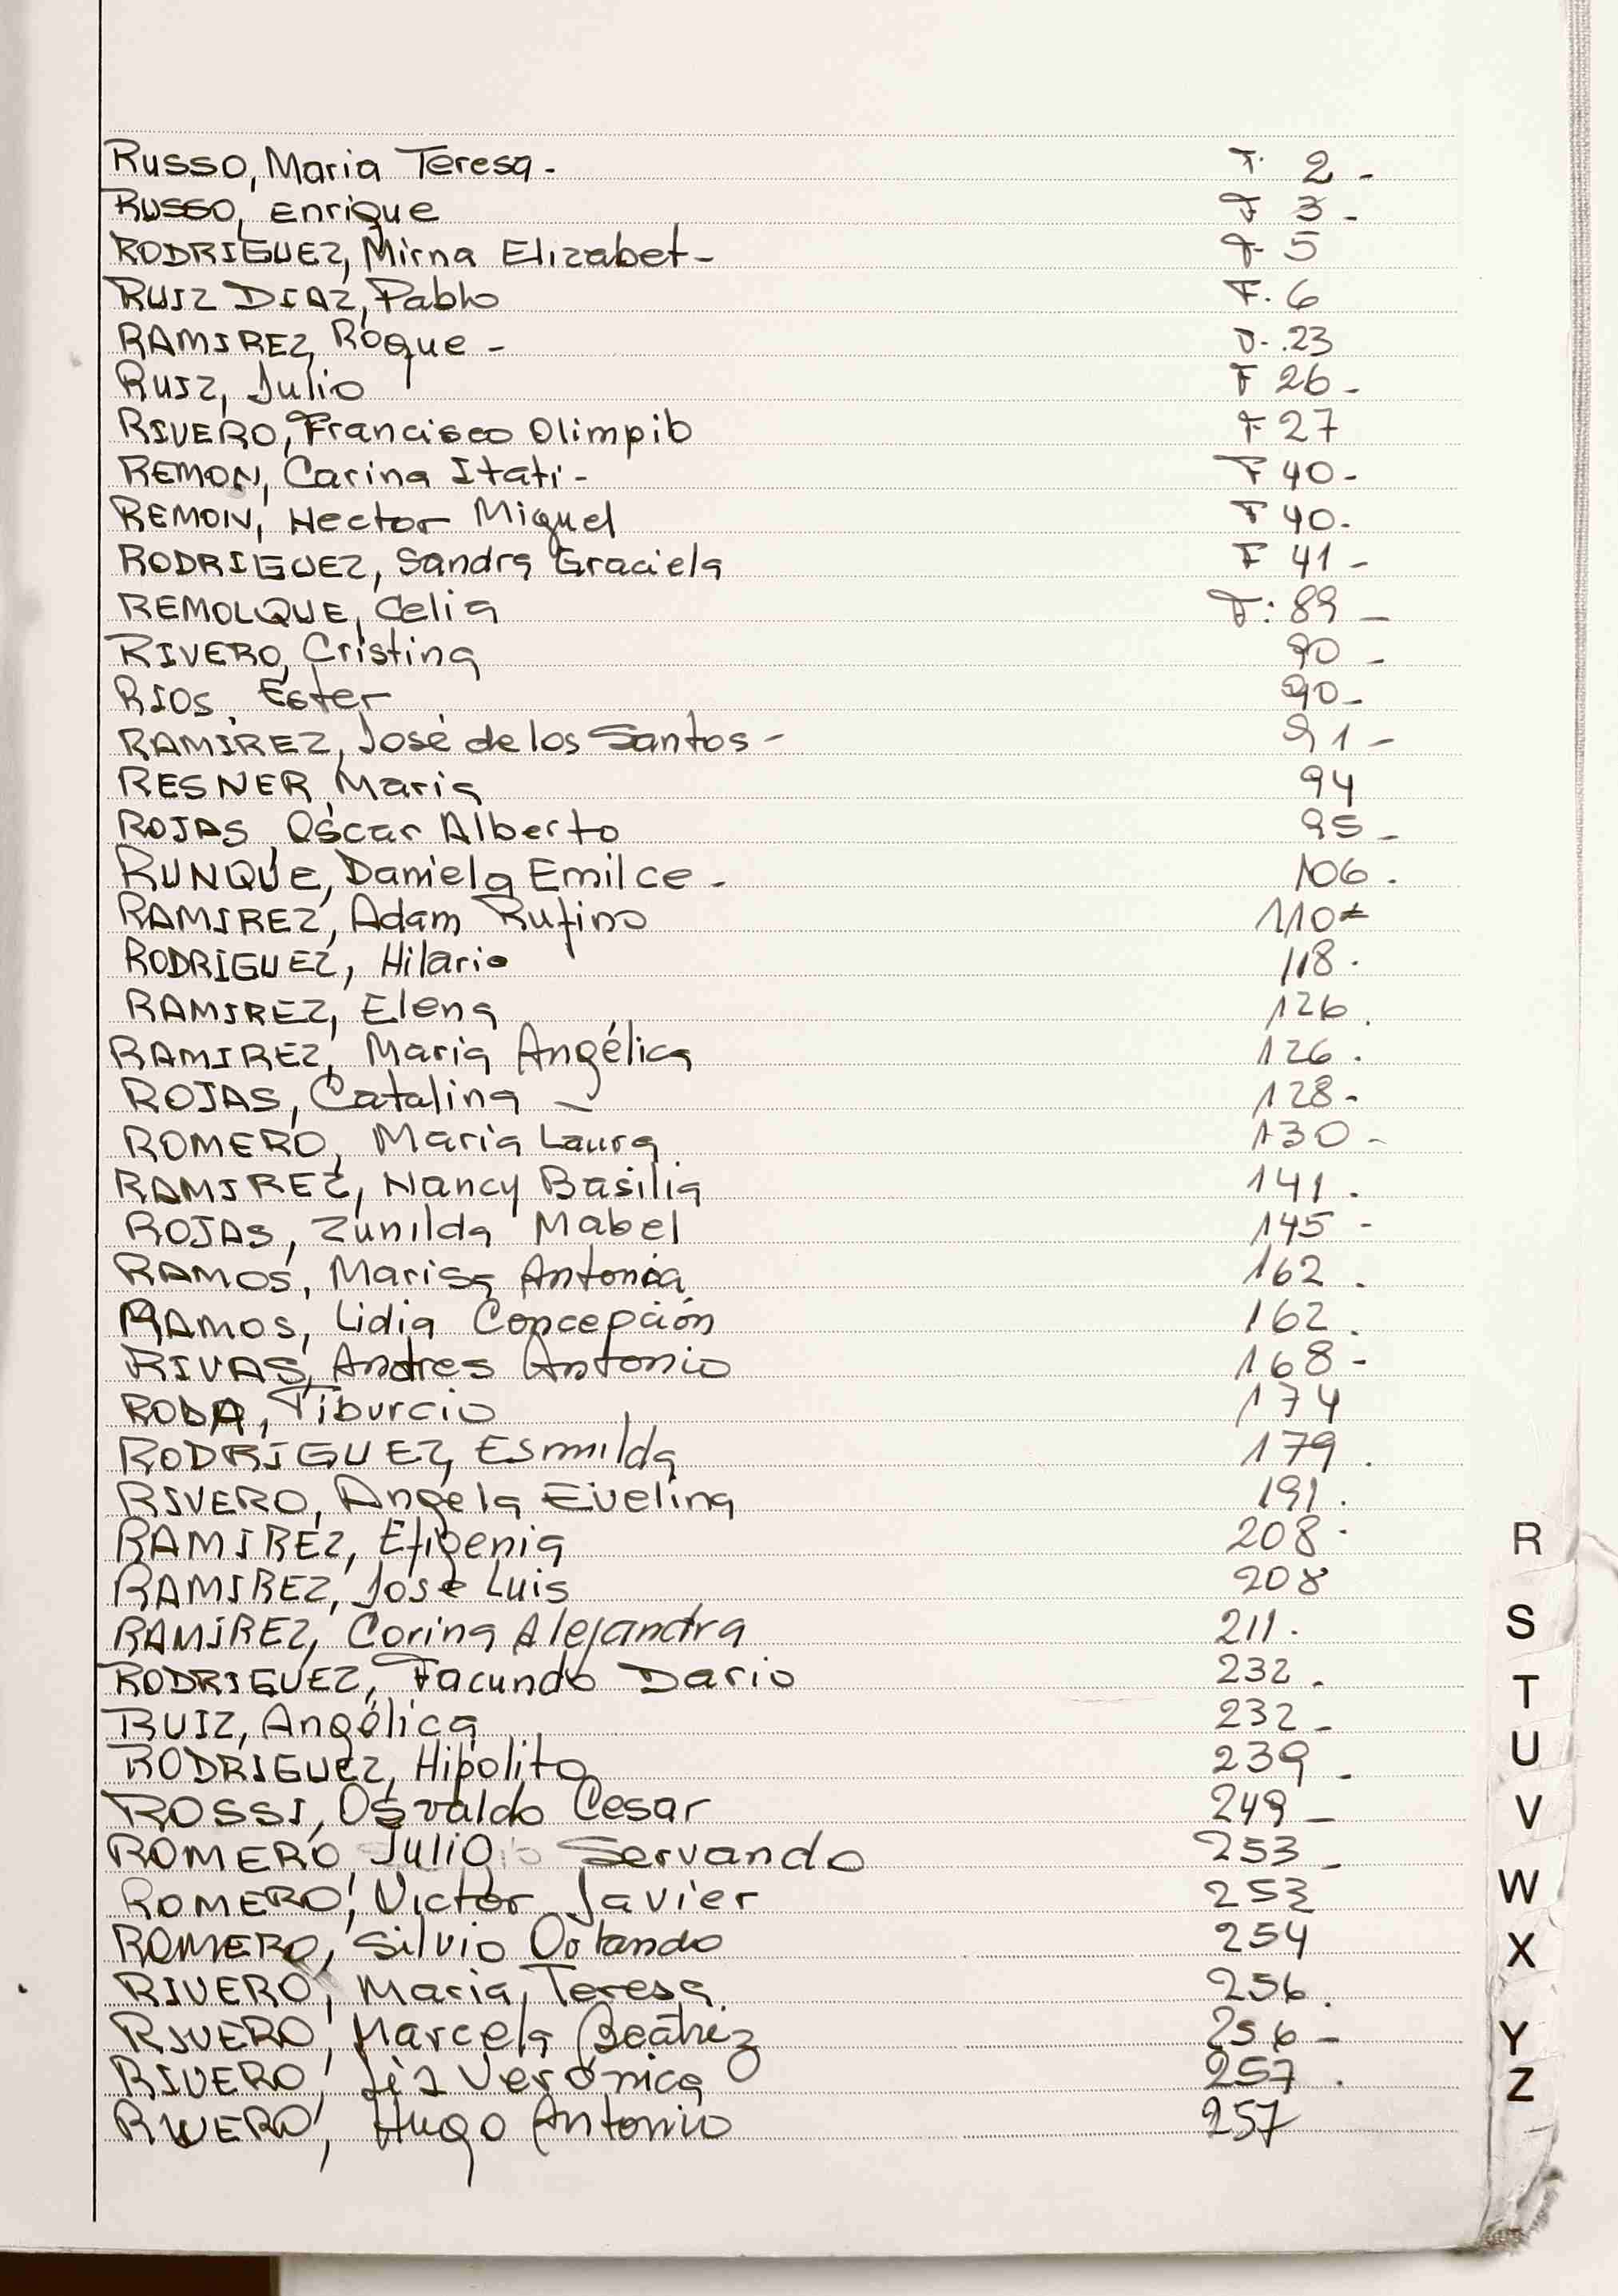 Russo, Maria Teresa- F. 2-
Russo, Enrique F 3-
RODRIGUEZ, Mirna Elizabet- F. 5
RUIZ DIAZ, Pablo F. 6
RAMIREZ, Roque- F. 23
Ruiz, Julio F 26-
RIVERO, Francisco Olimpio F 27
REMON, Carina Itati- F 40-
REMON, Hector Miguel F 40.
RODRIGUEZ, Sandra Graciela F 41-
REMOLQUE, Celia F: 89-
RIVERO, Cristina 90-
RIOS, Ester 90-
RAMIREZ, José de los Santos- 91-
RESNER, Maria 94
ROJAS, Oscar Alberto 95-
RUNQUE, Daniela Emilce- 106.
RAMIREZ, Adam Rufino 110-
RODRIGUEZ, Hilario 118.
RAMIREZ, Elena 126.
RAMIREZ, Maria Angélica 126.
ROJAS, Catalina- 128-
ROMERO, Maria Laura 130-
RAMIREZ, Nancy Basilia 141.
ROJAS, Zunilda Mabel 145-
RAMOS, Marisa Antonia 162.
RAMOS, Lidia Concepción 162.
RIVAS, Andres Antonio 168-
RODA, Tiburcio 174
RODRIGUEZ, Esmilda 179.
RIVERO, Angela Evelina 191.
RAMIREZ, Efigenia 208.
RAMIREZ, Jose Luis 208
RAMIREZ, Corina Alejandra 211.
RODRIGUEZ, Facundo Dario 232.
RUIZ, Angélica 232-
RODRIGUEZ, Hipólito 239-
ROSSI, Osvaldo Cesar 249-
ROMERO, Julio Servando 253-
ROMERO, Victor Javier 253
ROMERO, Silvio Orlando 254
RIVERO, Maria Teresa 256.
RIVERO, Marcela Beatriz 256-
RIVERO, Liz Verónica 257.
RIVERO, Hugo Antonio 257
R
S
T
U
V
W
X
Y
Z